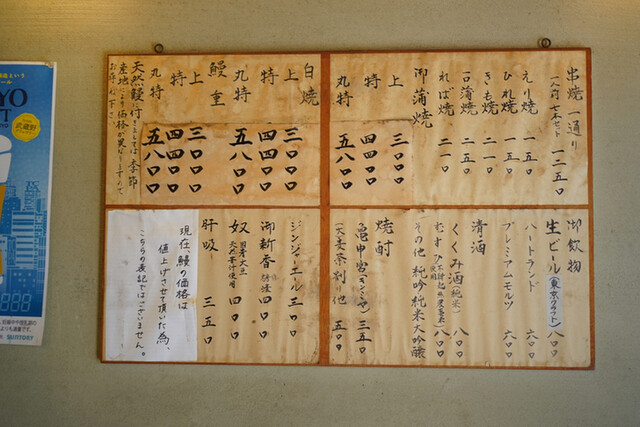 串焼一通り
一人前 七本セット 一二五〇
えり焼 一五〇
ひれ焼 一五〇
きも焼 二一〇
一口蒲焼 二五〇
れば焼 二一〇
御蒲焼
上 三〇〇〇
特 四四〇〇
丸特 五八〇〇
白焼
上 三〇〇〇
特 四四〇〇
丸特 五八〇〇
鰻重
上 三〇〇〇
特 四四〇〇
丸特 五八〇〇
天然鰻に付きましては季節
産地により価格が異なりますので
御飲物
生ビール(東京クラフト) 八〇〇
ハートランド 六〇〇
プレミアムモルツ 六〇〇
清酒
くくみ酒(純米) 八〇〇
むすひ 八〇〇
その他 純吟 純米大吟醸
焼酎
亀甲宮(きっこうみや) 三五〇
(大麦茶割り他 五〇〇
ジンジャーエール 三〇〇
御新香 四〇〇
奴 国産大豆 天然苦汁使用 四〇〇
肝吸 三五〇
現在、鰻の価格は
値上げさせて頂いた為、
こちらの表記ではございません。
武蔵野
SUNTORY